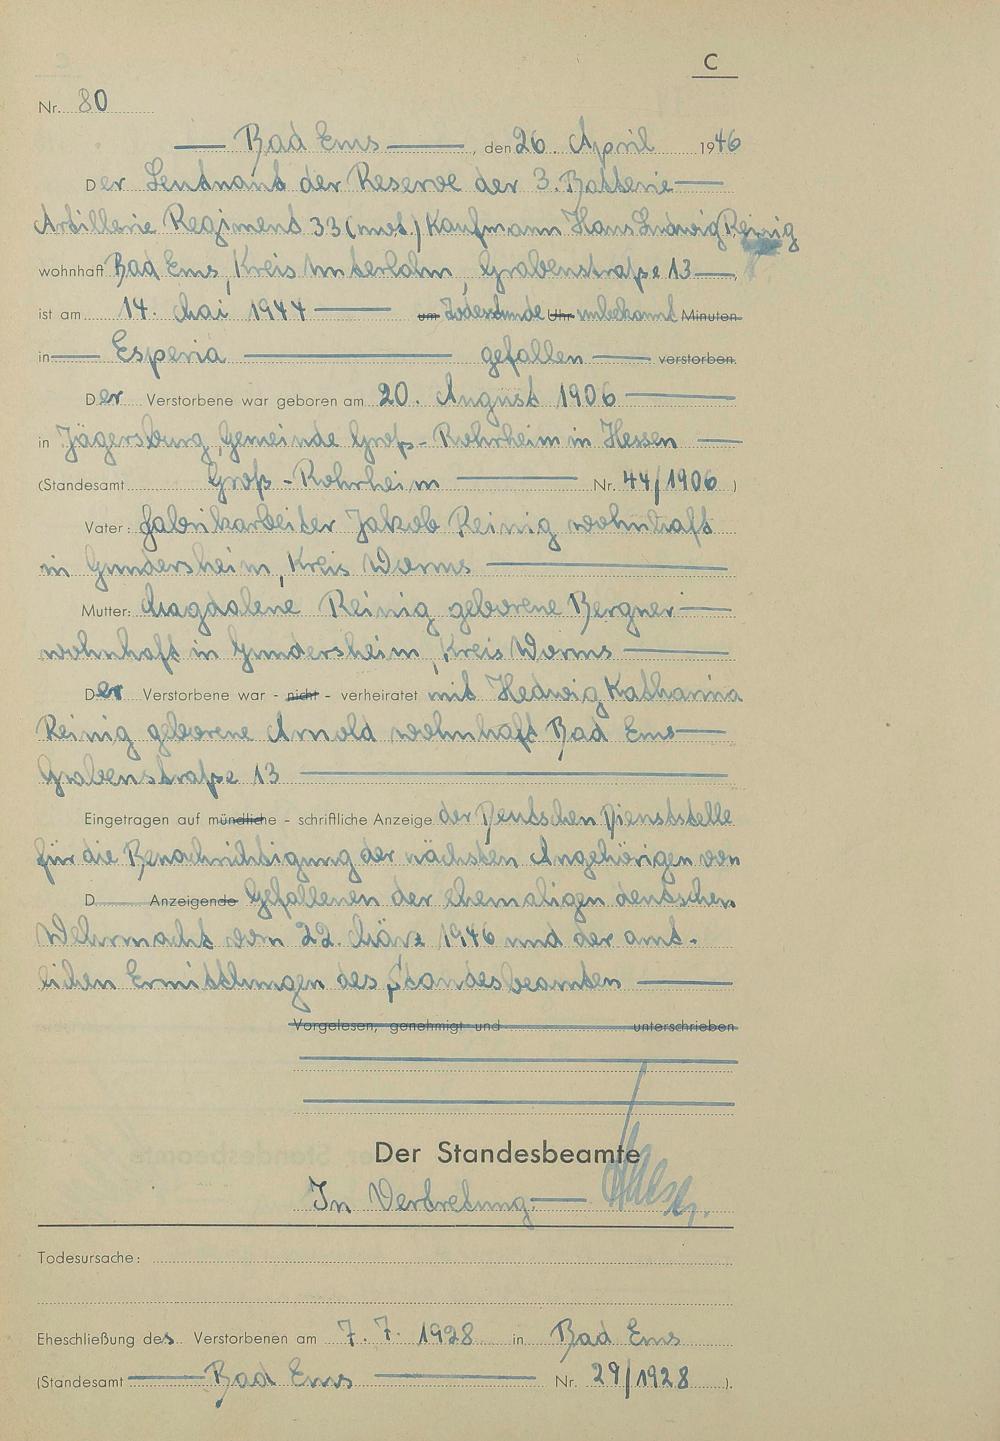 C
Nr. 80
Bad Ems, den 26. April 1946
Der Leutnant der Reserve der 3. Batterie
Artillerie Regiment 33 (mot.) Kaufmann Hans Ludwig Reinig
wohnhaft Bad Ems, Kreis Unterlahn, Grabenstraße 13,
ist am 14. Mai 1944 um Todesstunde Uhr unbekannt Minuten
in Esperia gefallen verstorben.
Der Verstorbene war geboren am 20. August 1906
in Jägersburg, Gemeinde Groß-Rohrheim in Hessen
(Standesamt Groß-Rohrheim Nr. 44/1906)
Vater: Fabrikarbeiter Jakob Reinig wohnhaft
in Gundersheim, Kreis Worms
Mutter: Magdalene Reinig geborene Bergner
wohnhaft in Gundersheim, Kreis Worms
Der Verstorbene war - nicht - verheiratet mit Hedwig Katharina
Reinig geborene Arnold wohnhaft Bad Ems
Grabenstraße 13
Eingetragen auf mündliche - schriftliche Anzeige der Deutschen Dienststelle
für die Benachrichtigung der nächsten Angehörigen von
D Anzeigende Gefallenen der ehemaligen deutschen
Wehrmacht vom 22. März 1946 und der amt-
lichen Ermittlungen des Standesbeamten
Vorgelesen, genehmigt und unterschrieben
Der Standesbeamte
In Vertretung:
Todesursache:
Eheschließung des Verstorbenen am 7. 7. 1928 in Bad Ems
(Standesamt Bad Ems Nr. 29/1928).